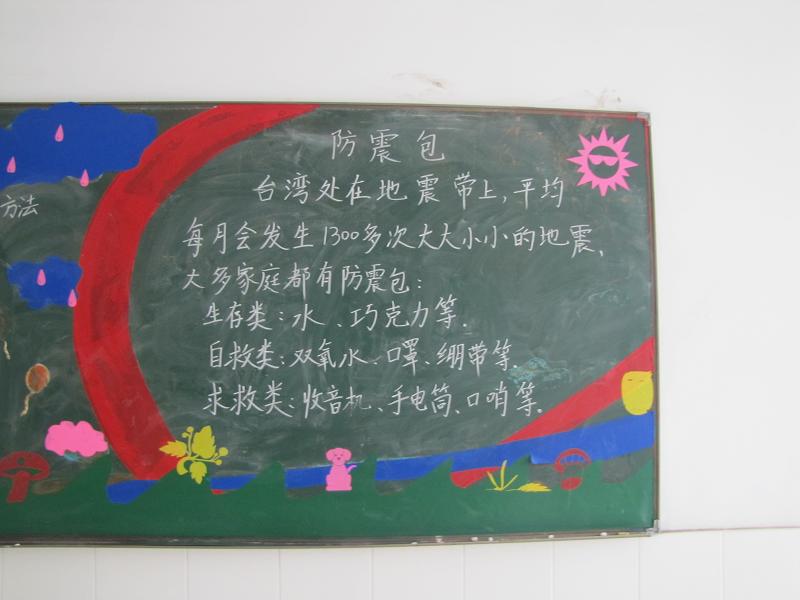 防震包
台湾处在地震带上,平均
方法
每月会发生1300多次大大小小的地震,
大多家庭都有防震包:
生存类:水、巧克力等.
自救类:双氧水、口罩、绷带等.
求救类:收音机、手电筒、口哨等.